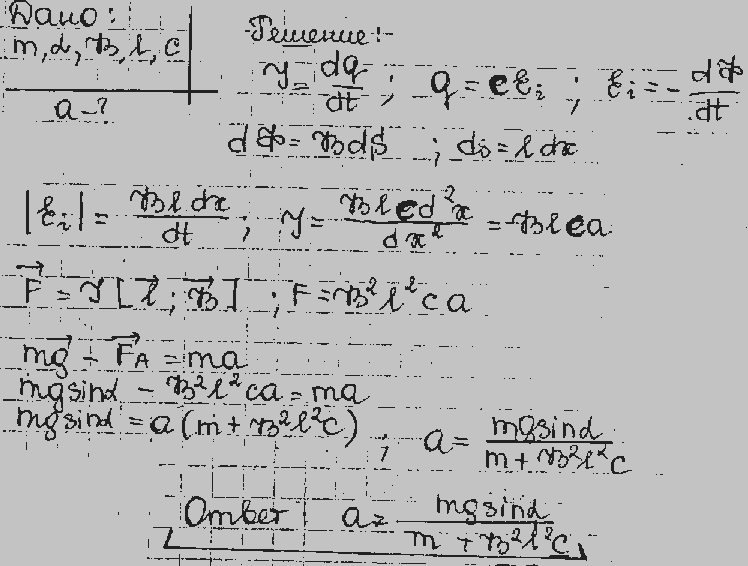 Дано:
m, α, B, l, C
a - ?
Решение:
I = dq/dt ; q = Cℰᵢ ; ℰᵢ = - dФ/dt
dФ = BdS ; ds = l dx
|ℰᵢ| = Bl dx/dt ; I = BlCd²x/dx² = BlCa
F⃗ = I[l⃗ ; B⃗] ; F = B²l²Ca
mg⃗ + F⃗A = ma
mgsinα - B²l²Ca = ma
mgsinα = a(m + B²l²C) ; a = mgsinα/(m + B²l²C)
Ответ a = mgsinα/(m + B²l²C)